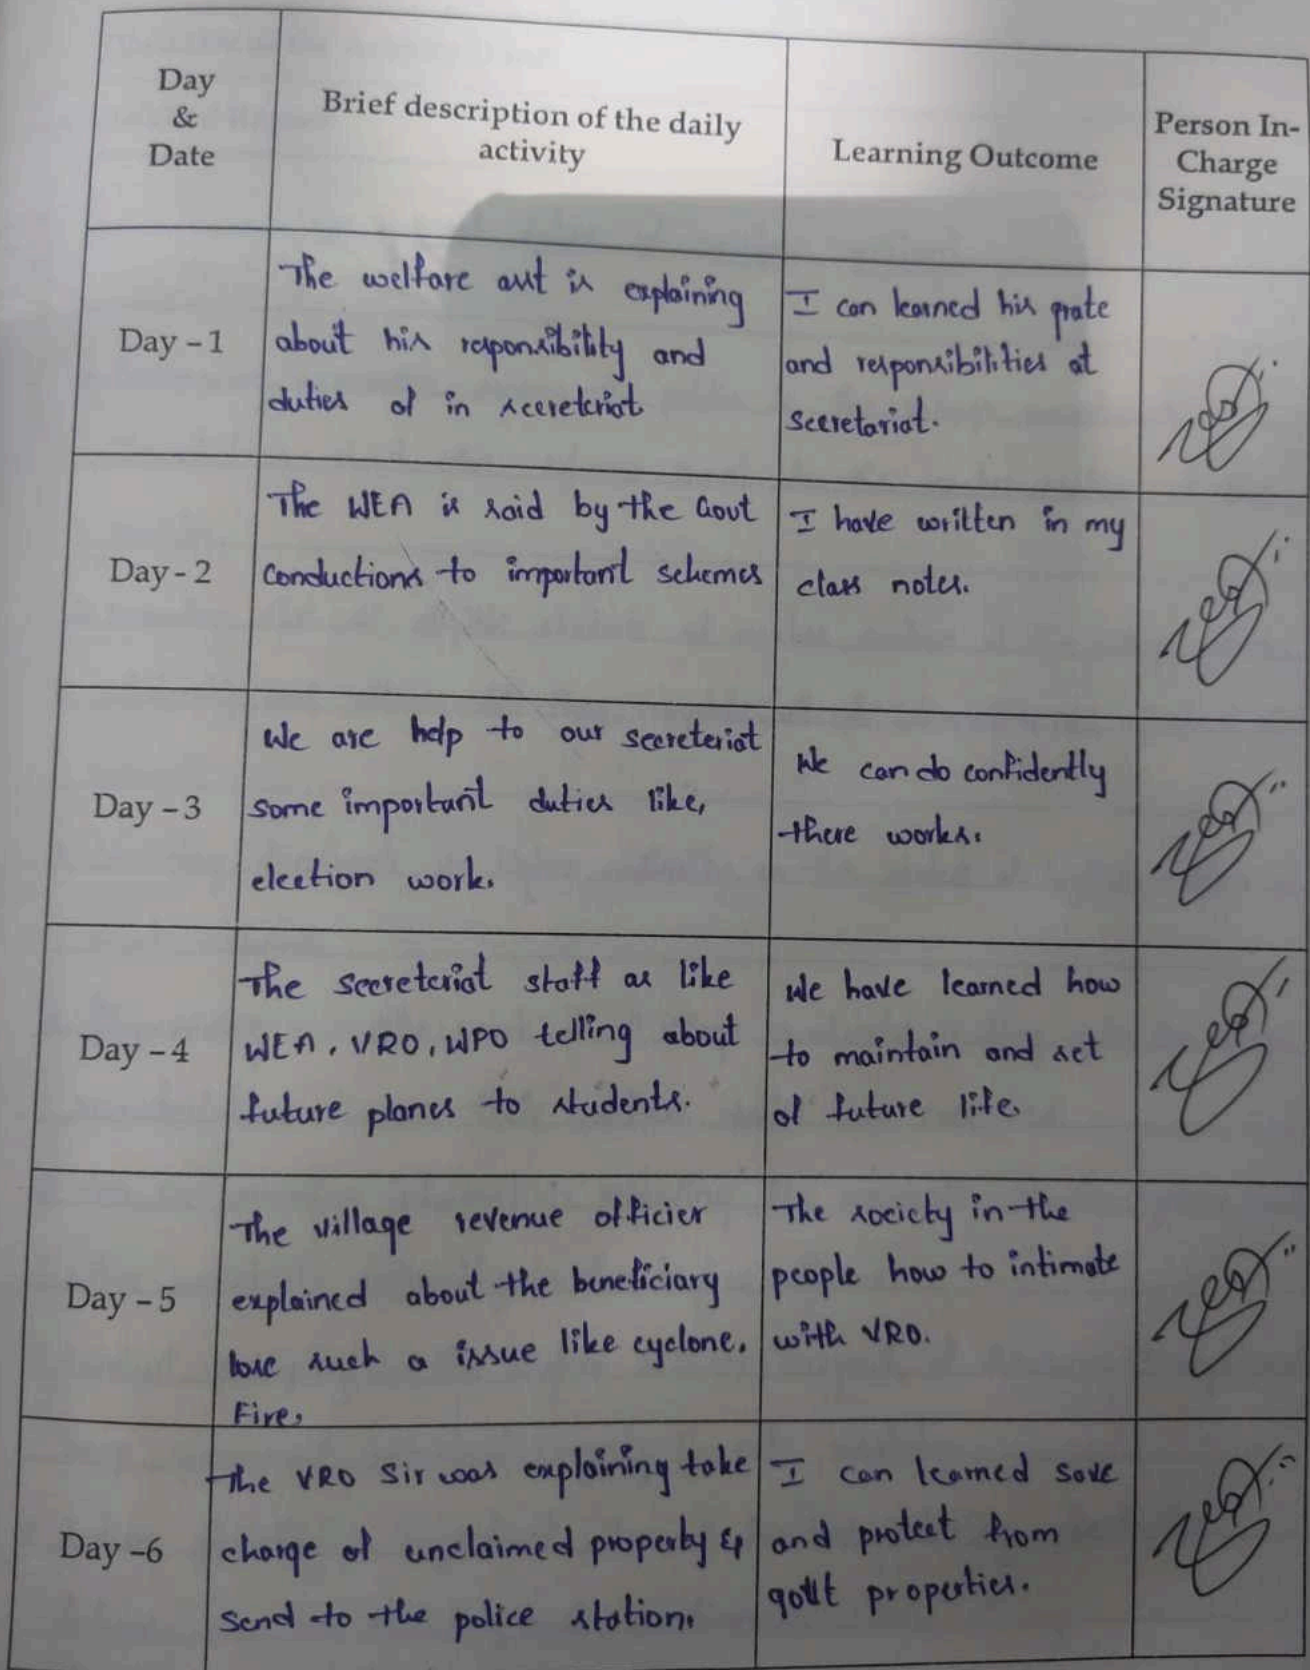 Day
&
Date
Brief description of the daily
activity
Learning Outcome
Person In-
Charge
Signature
Day - 1
The welfare is explaining
about his responsibility and
duties of in secreteriat
I can learned his
and responsibilities at
secretariat.
Day - 2
The WEA is said by the Govt
Conductions to important schemes
I have written in my
class notes.
Day - 3
We are help to our secreteriat
some important duties like,
election work.
We can do confidently
there works.
Day - 4
The secreteriat staff as like
WEA, VRO, WPO telling about
future planes to students.
We have learned how
to maintain and set
of future life.
Day - 5
The village revenue officier
explained about the beneficiary
such a issue like cyclone,
Fire,
The society in the
people how to intimate
with VRO.
Day -6
The VRO Sir was explaining take
charge of unclaimed property &
send to the police station.
I can learned save
and protect from
govt properties.